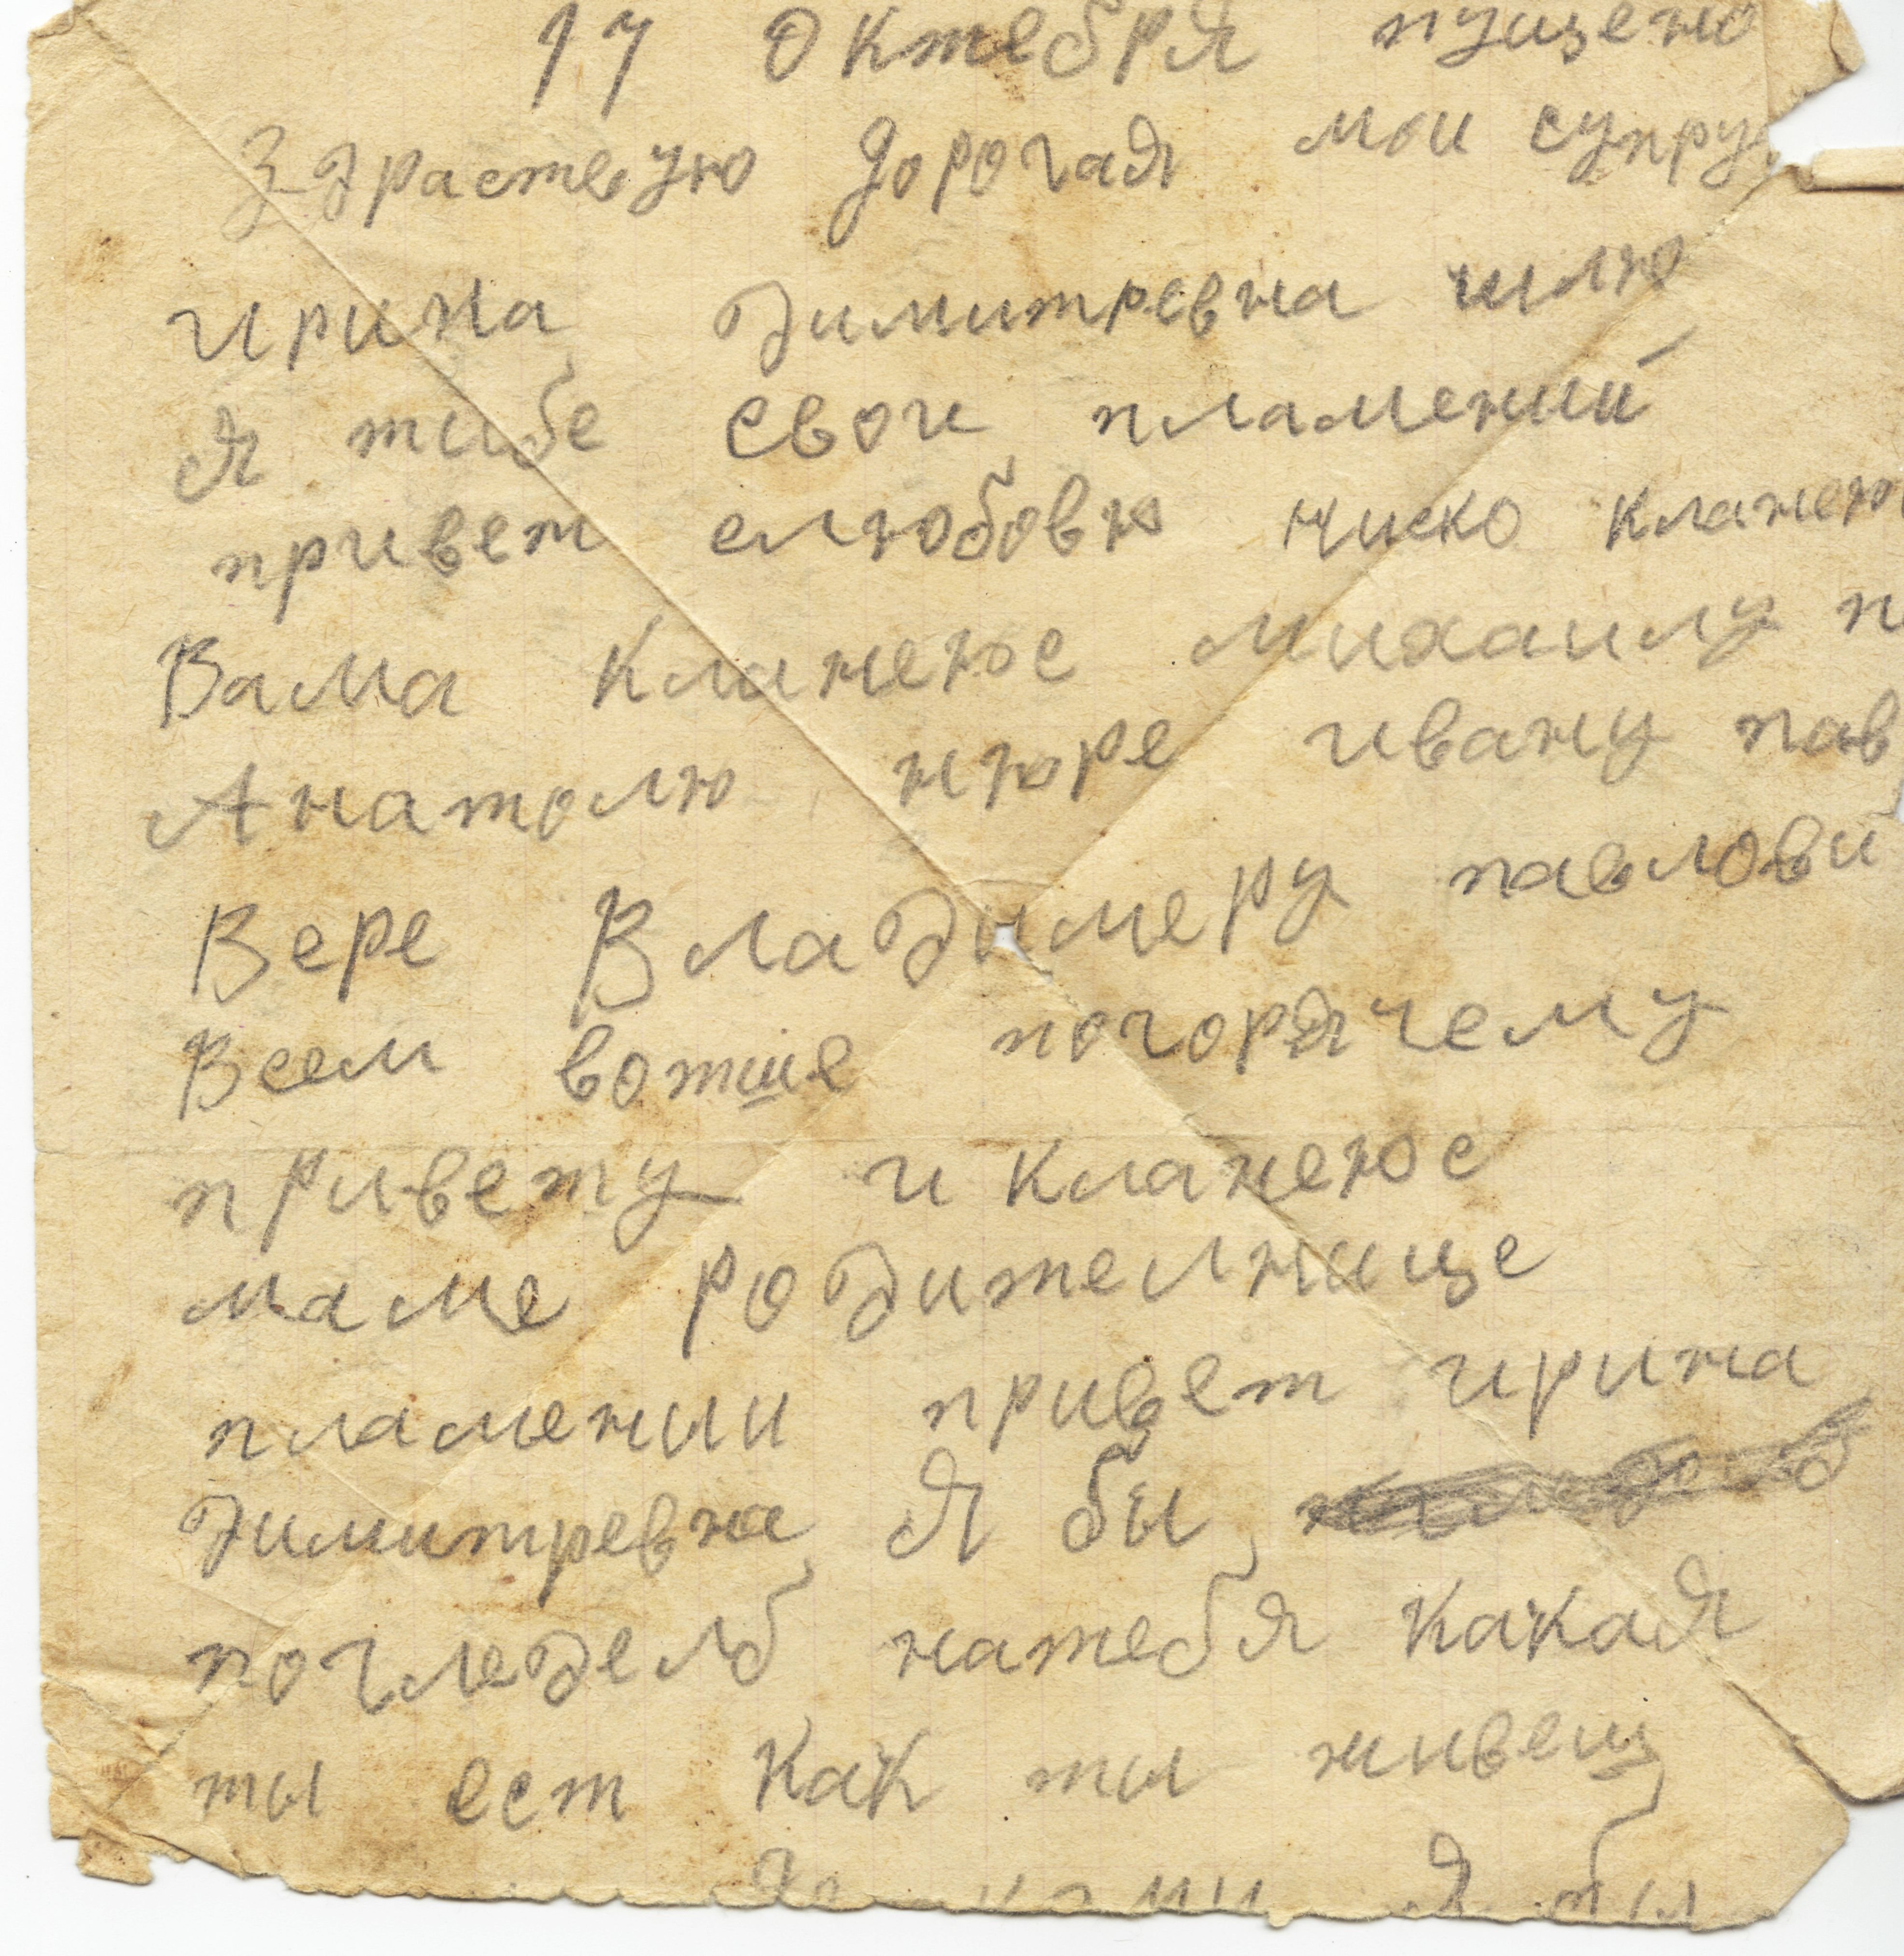 17 октебря пущено
Здраствую дорогая мои супру
ирина димитревна шлю
я тибе свои пламений
привет слюбовю ниско кланею
Вама кланеюс михаилу п
Анатолю нюре ивану пав
Вере Владимеру павлови
Всем вотше погорячему
привету и кланеюс
маме родителнице
пламении привет ирина
димитревна я бы
погледелб натебя какая
ты ест как ты живеш
я бы